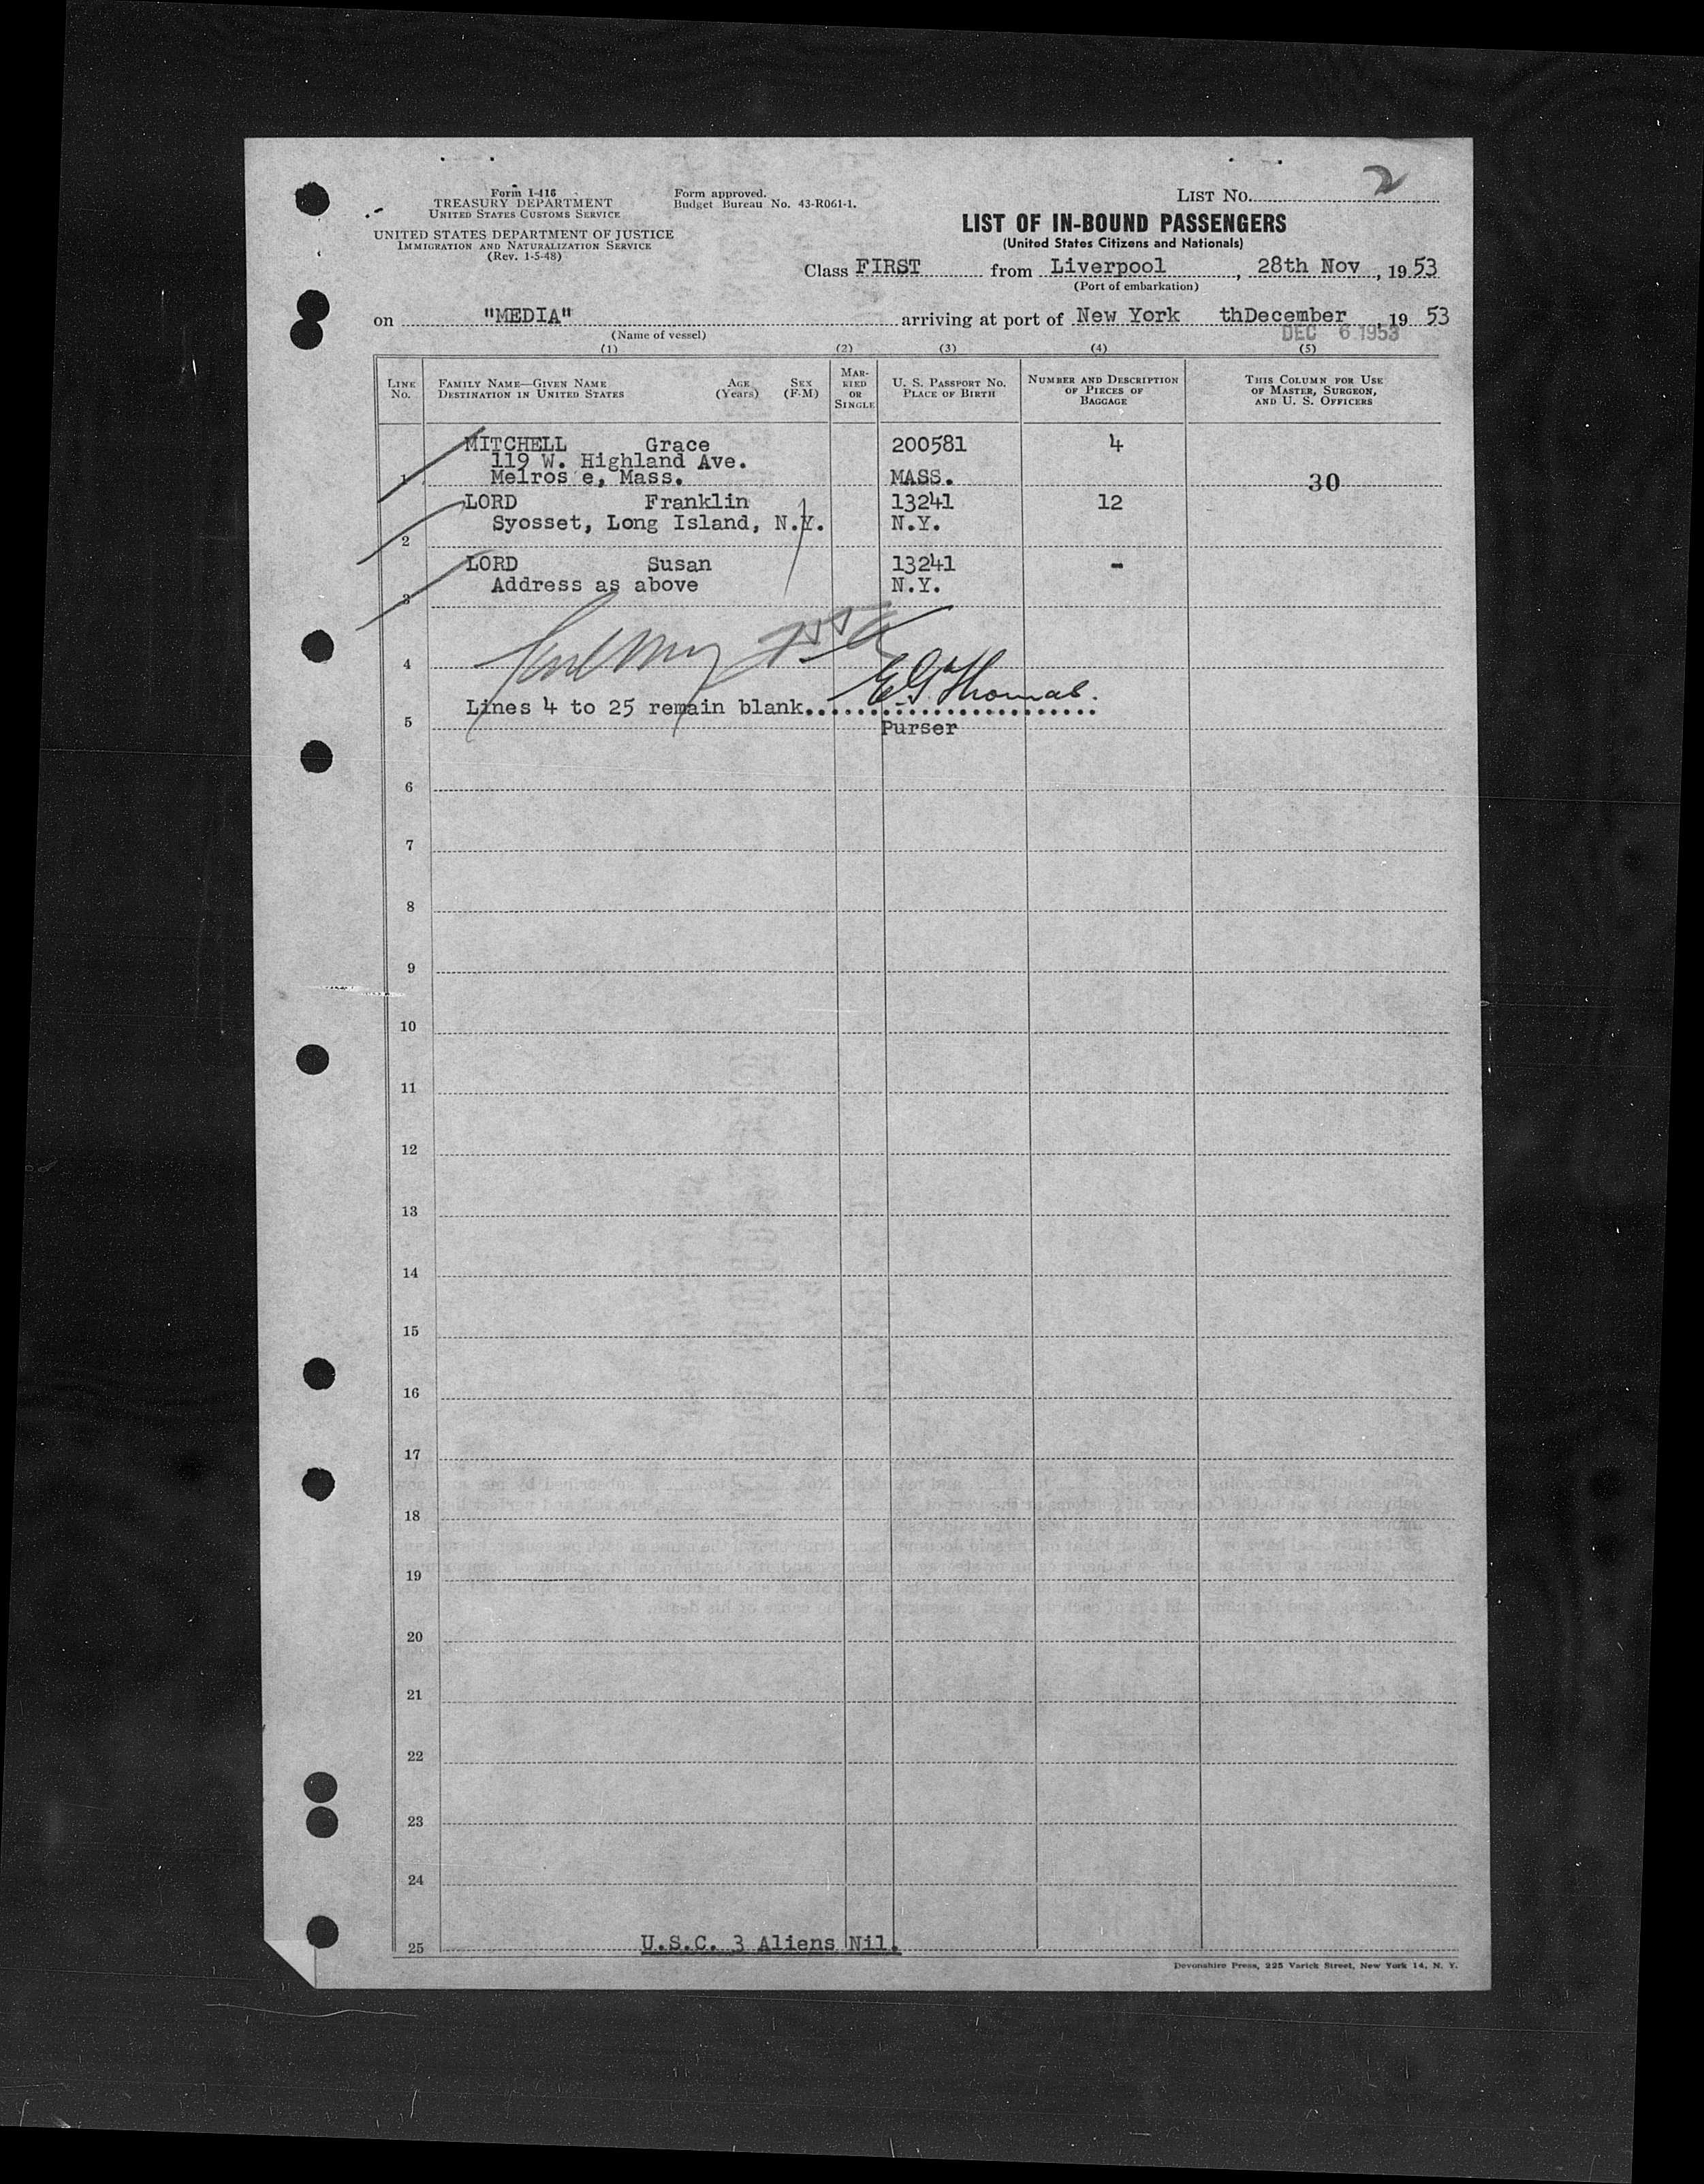 Form I-416
TREASURY DEPARTMENT
UNITED STATES CUSTOMS SERVICE
UNITED STATES DEPARTMENT OF JUSTICE
IMMIGRATION AND NATURALIZATION SERVICE
(Rev. 1-5-48)
Form approved.
Budget Bureau No. 43-R061-1.
LIST No. 2
LIST OF IN-BOUND PASSENGERS
(United States Citizens and Nationals)
Class FIRST from Liverpool, 28th Nov, 1953
(Port of embarkation)
on "MEDIA" arriving at port of New York thDecember, 1953
(Name of vessel)
DEC 6 1953
(1) (2) (3) (4) (5)
LINE No.
FAMILY NAME—GIVEN NAME
DESTINATION IN UNITED STATES
AGE (Years)
SEX (F-M)
MARRIED OR SINGLE
U. S. PASSPORT No.
PLACE OF BIRTH
NUMBER AND DESCRIPTION OF PIECES OF BAGGAGE
THIS COLUMN FOR USE OF MASTER, SURGEON, AND U. S. OFFICERS
MITCHELL Grace 200581 4
119 W. Highland Ave.
1 Melros e, Mass. MASS. 30
LORD Franklin 13241 12
Syosset, Long Island, N.Y. N.Y.
2
LORD Susan 13241 -
Address as above N.Y.
3
4
E G Thomas.
Lines 4 to 25 remain blank........................
5 Purser
6
7
8
9
10
11
12
13
14
15
16
17
18
19
20
21
22
23
24
25 U.S.C. 3 Aliens Nil.
Devonshire Press, 225 Varick Street, New York 14, N. Y.